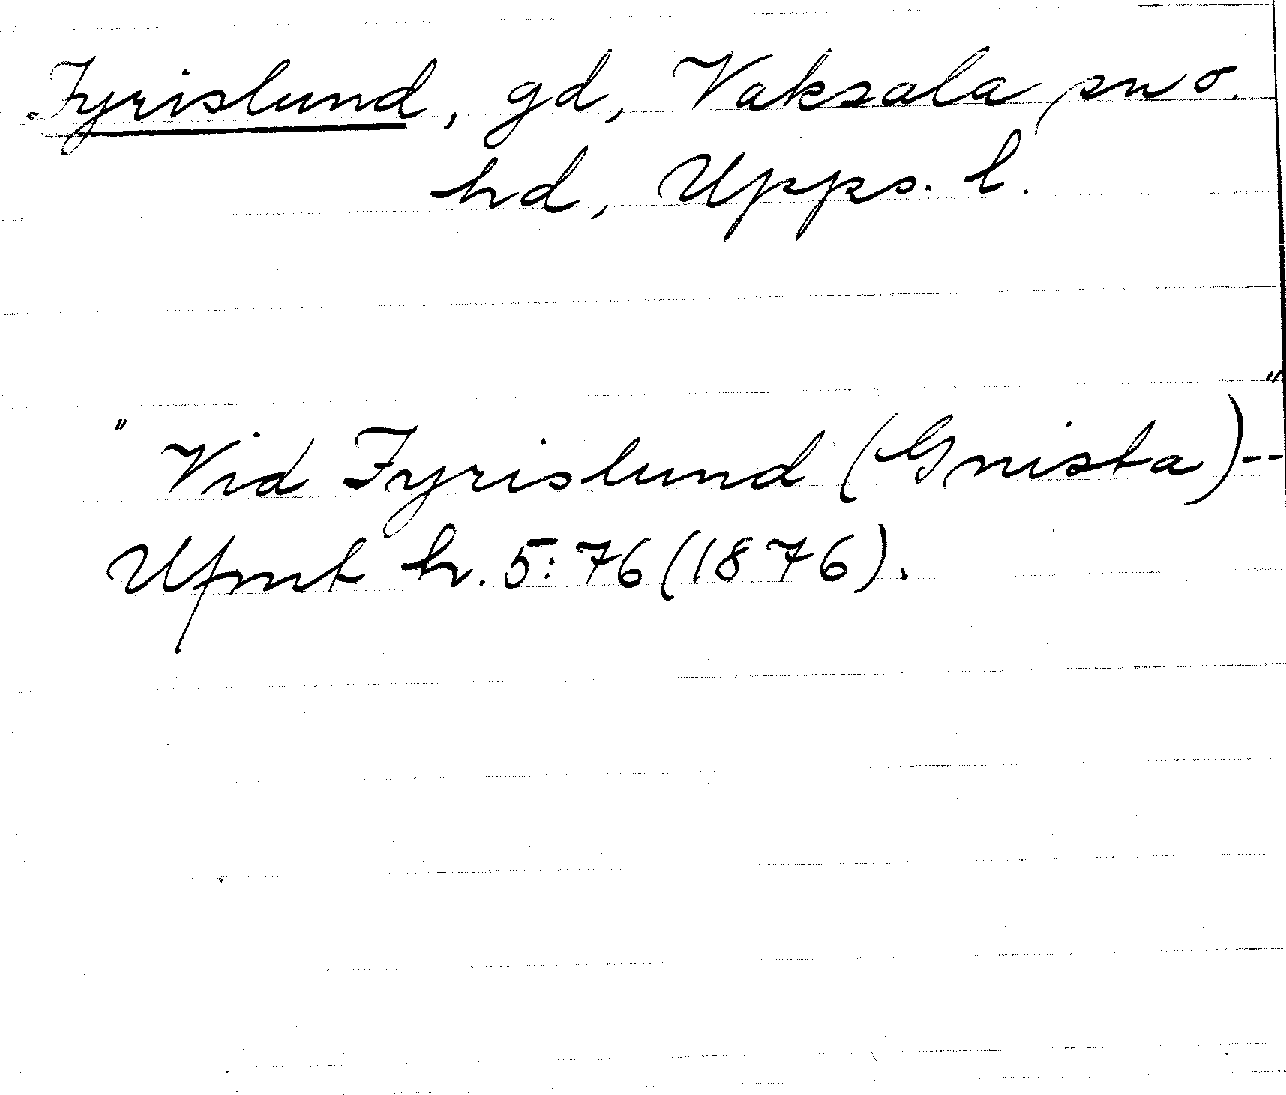 Fyrislund, gd, Vaksala sn o.
hd, Upps. l.
"Vid Fyrislund (Gnista)--"
Ufmt h. 5:76 (1876).